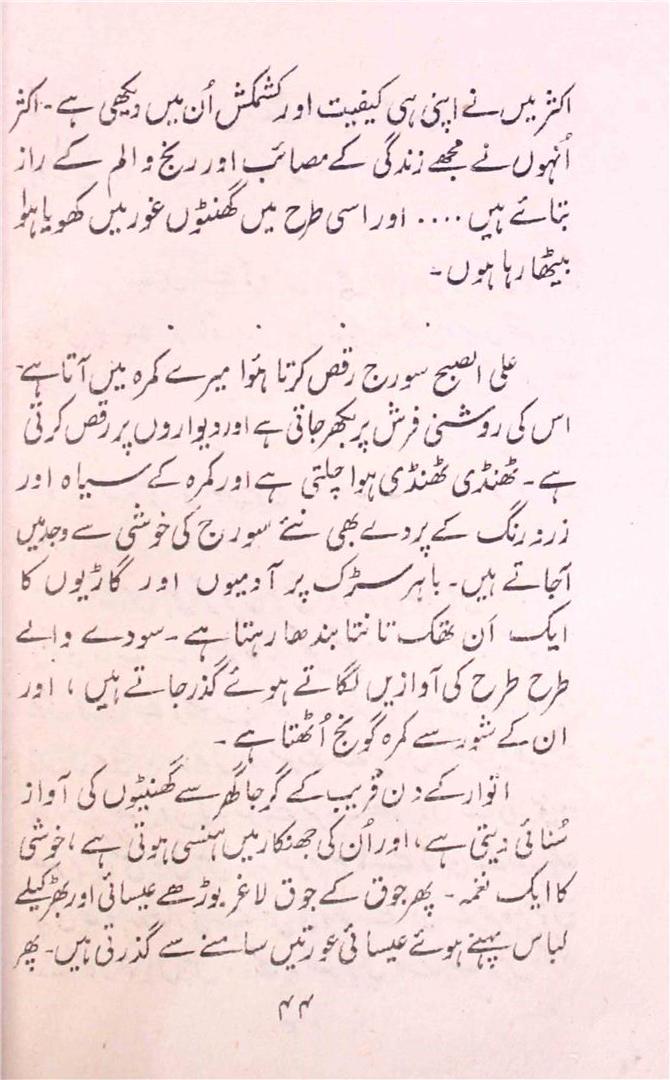 اکثر میں نے اپنی ہی کیفیت اور کشمکش اُن میں دیکھی ہے۔ اکثر
اُنہوں نے مجھے زندگی کے مصائب اور رنج و الم کے راز
بتائے ہیں .... اور اسی طرح میں گھنٹوں غور میں کھویا ہوا
بیٹھا رہا ہوں۔
. . . .
علی الصبح سورج رقص کرتا ہؤا میرے کمرہ میں آتا ہے۔
اس کی روشنی فرش پر بکھر جاتی ہے اور دیواروں پر رقص کرتی
ہے۔ ٹھنڈی ٹھنڈی ہوا چلتی ہے اور کمرہ کے سیاہ اور
زرد رنگ کے پردے بھی نئے سورج کی خوشی سے وجد میں
آجاتے ہیں۔ باہر سڑک پر آدمیوں اور گاڑیوں کا
ایک اَن تھک تانتا بندھا رہتا ہے۔ سودے والے
طرح طرح کی آوازیں لگاتے ہوئے گذر جاتے ہیں، اور
ان کے شور سے کمرہ گونج اُٹھتا ہے۔
اتوار کے دن قریب کے گرجا گھر سے گھنٹیوں کی آواز
سُنائی دیتی ہے، اور اُن کی جھنکار میں ہنسی ہوتی ہے، خوشی
کا ایک نغمہ۔ پھر جوق کے جوق لاغر بوڑھے عیسائی اور بھڑکیلے
لباس پہنے ہوئے عیسائی عورتیں سامنے سے گذرتی ہیں۔ پھر
۴۴